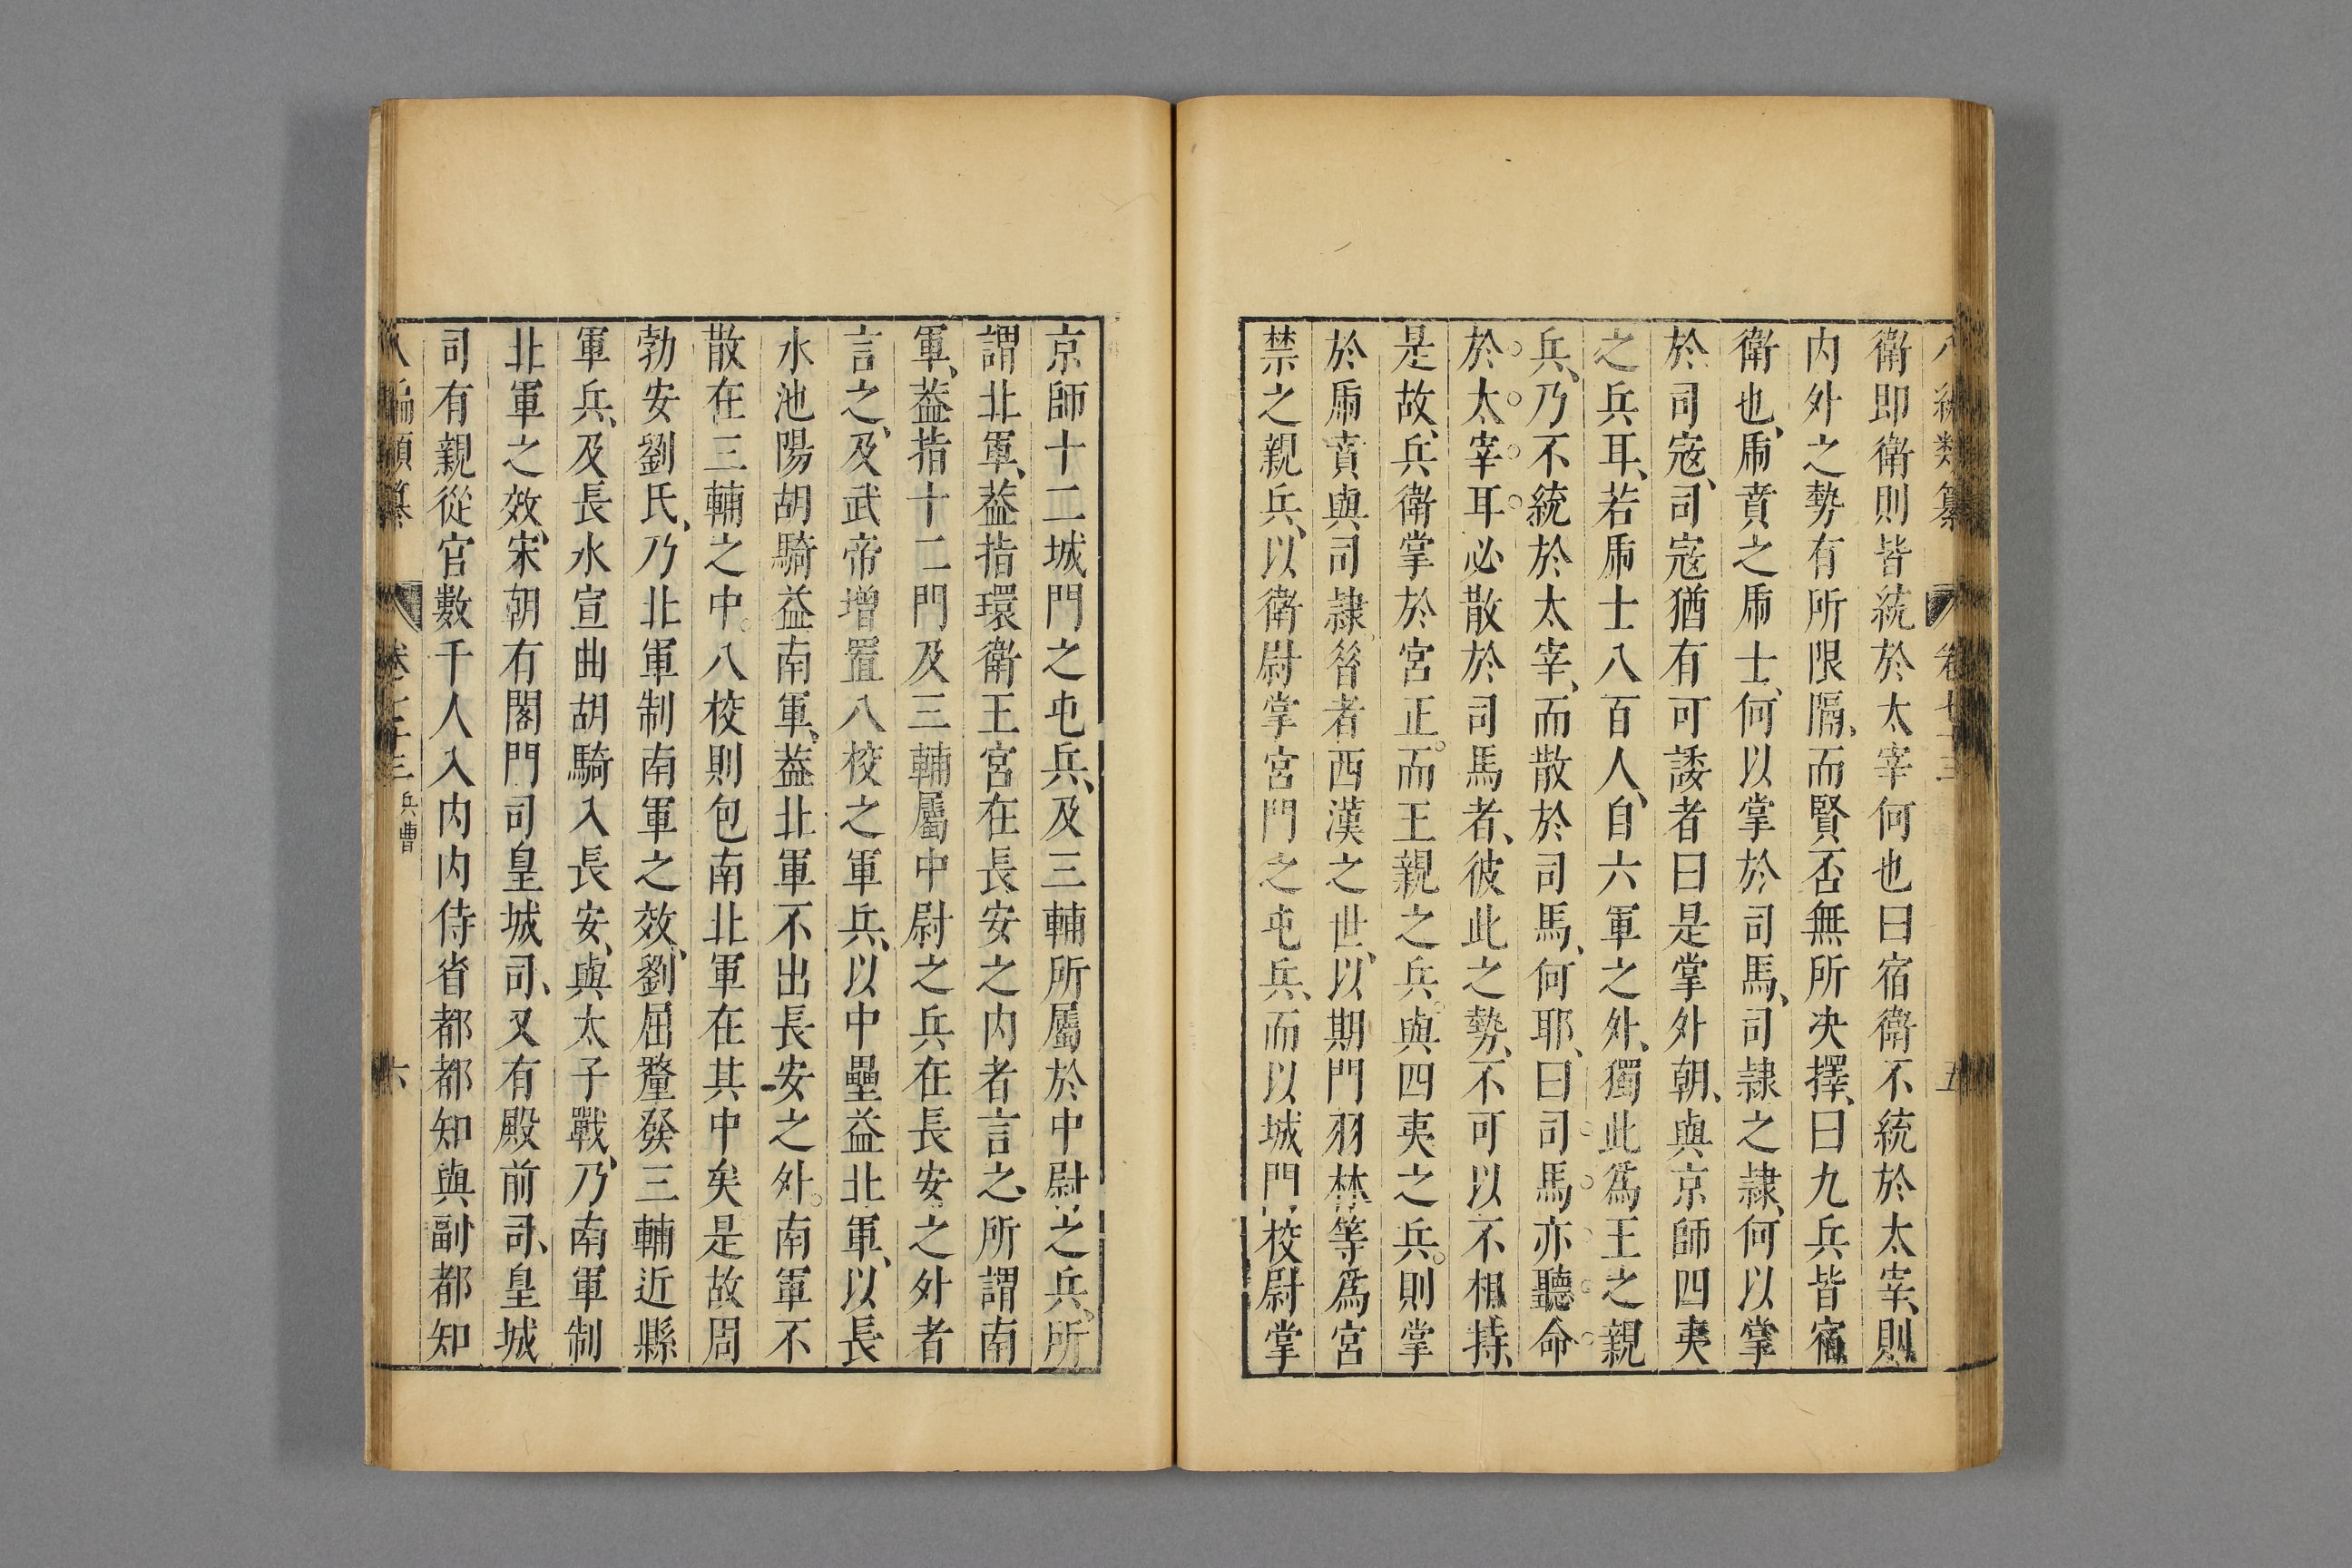 衛即衛則皆統於太宰何也曰宿衛不統於太宰、則
内外之勢有所限隔、而賢否無所决擇、曰九兵皆宿
衛也、虎賁之虎士、何以掌於司馬、司隷之隷、何以掌
於司寇、司寇猶有可諉者曰是掌外朝、與京師四夷
之兵耳、若虎士八百人、自六軍之外、獨此爲王之親
兵、乃不統於太宰、而散於司馬、何耶、曰司馬亦聽命
於太宰耳必散於司馬者、彼此之勢、不可以不相持、
是故、兵衛掌於宮正。而王親之兵。與四夷之兵。則掌
於虎賁與司隷。咎者西漢之世、以期門羽林等爲宮
禁之親兵、以衛尉掌宮門之屯兵、而以城門校尉掌
八編類纂 卷七十三 五
京師十二城門之屯兵、及三輔所屬於中尉之兵。所
謂北軍、葢指環衛王宮在長安之内者言之、所謂南
軍、葢指十二門及三輔屬中尉之兵在長安之外者
言之、及武帝增置八校之軍兵、以中壘益北軍、以長
水池陽胡騎益南軍。葢北軍不出長安之外。南軍不
散在三輔之中。八校則包南北軍在其中矣是故周
勃安劉氏、乃北軍制南軍之效、劉屈氂發三輔近縣
軍兵、及長水宣曲胡騎入長安、與太子戰、乃南軍制
北軍之效、宋朝有閣門司皇城司、又有殿前司、皇城
司有親從官數千人入内内侍省都都知與副都知
八編類纂 卷七十三 兵曹 六